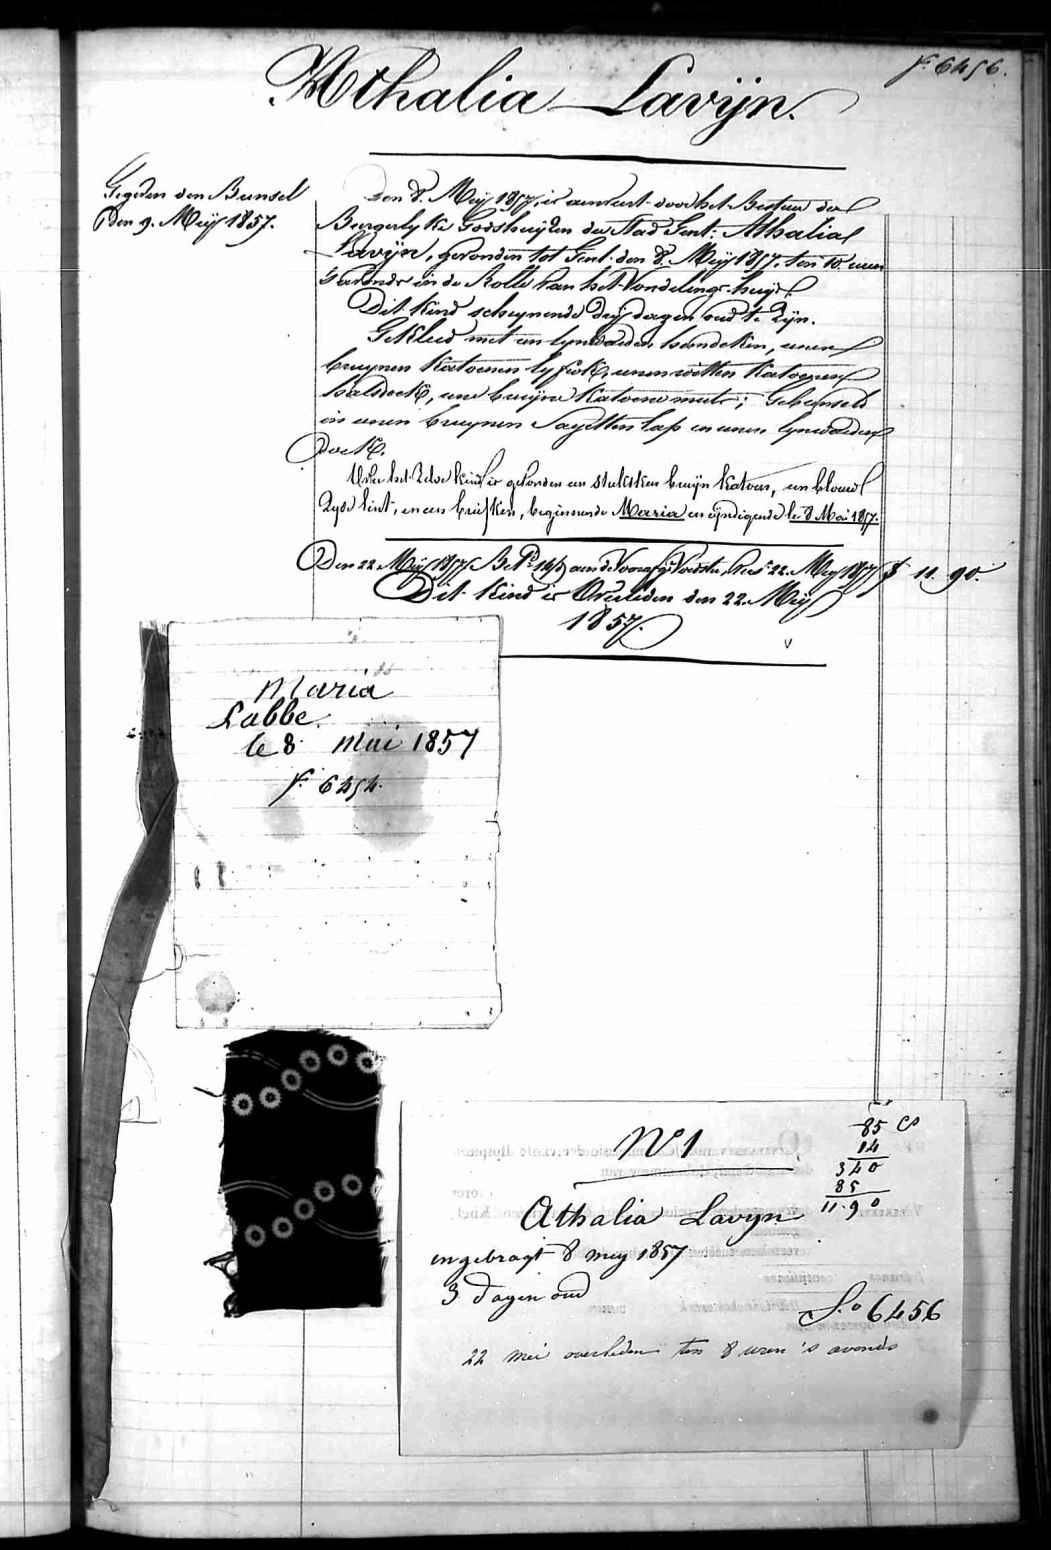 f.° 6456.
Athalia Lavijn.
Gegeven den Bunsel
Den 9. Meij 1857.
Den 8. Meij 1857, is aenveert door het Bestuer der
Burgerlyke Godshuyzen der Stad Gent: Athalia
Lavijn, gevonden tot Gent den 8. Meij 1857. ten 10. uren
's avonds in de Rolle van het Vondelings-huys.
Dit kind scheynende dry dagen oud te Zijn.
Gekleed met een lynwaeden hemdeken, eenen
bruynen katoenen lyfrok, eenen witten katoenen
halsdoek, eene bruyne katoene muts; Gebunseld
in eenen bruynen Sayetten lap en eenen lynwaeden
doek.
Over het Zelve kind is gevonden een stuksken bruyn katoen, een blauw
Zyde lint, en een briefken, beginnende Maria en eyndigende le 8 Mai 1857.
Den 22 Meij 1857 Bet. 14 aen de Voedster, 22. Meij 1857 f 11. 90.
Dit kind is Overleden den 22. Meij
1857.
v
Maria
Labbe.
le 8 Mai 1857
f.° 6454.
N° 1
85 cs
14
340
85
11.90
Athalia Lavyn
ingebragt 8 mey 1857
3 dagen oud
F.° 6456
22 mei overleden ten 8 uren 's avonds